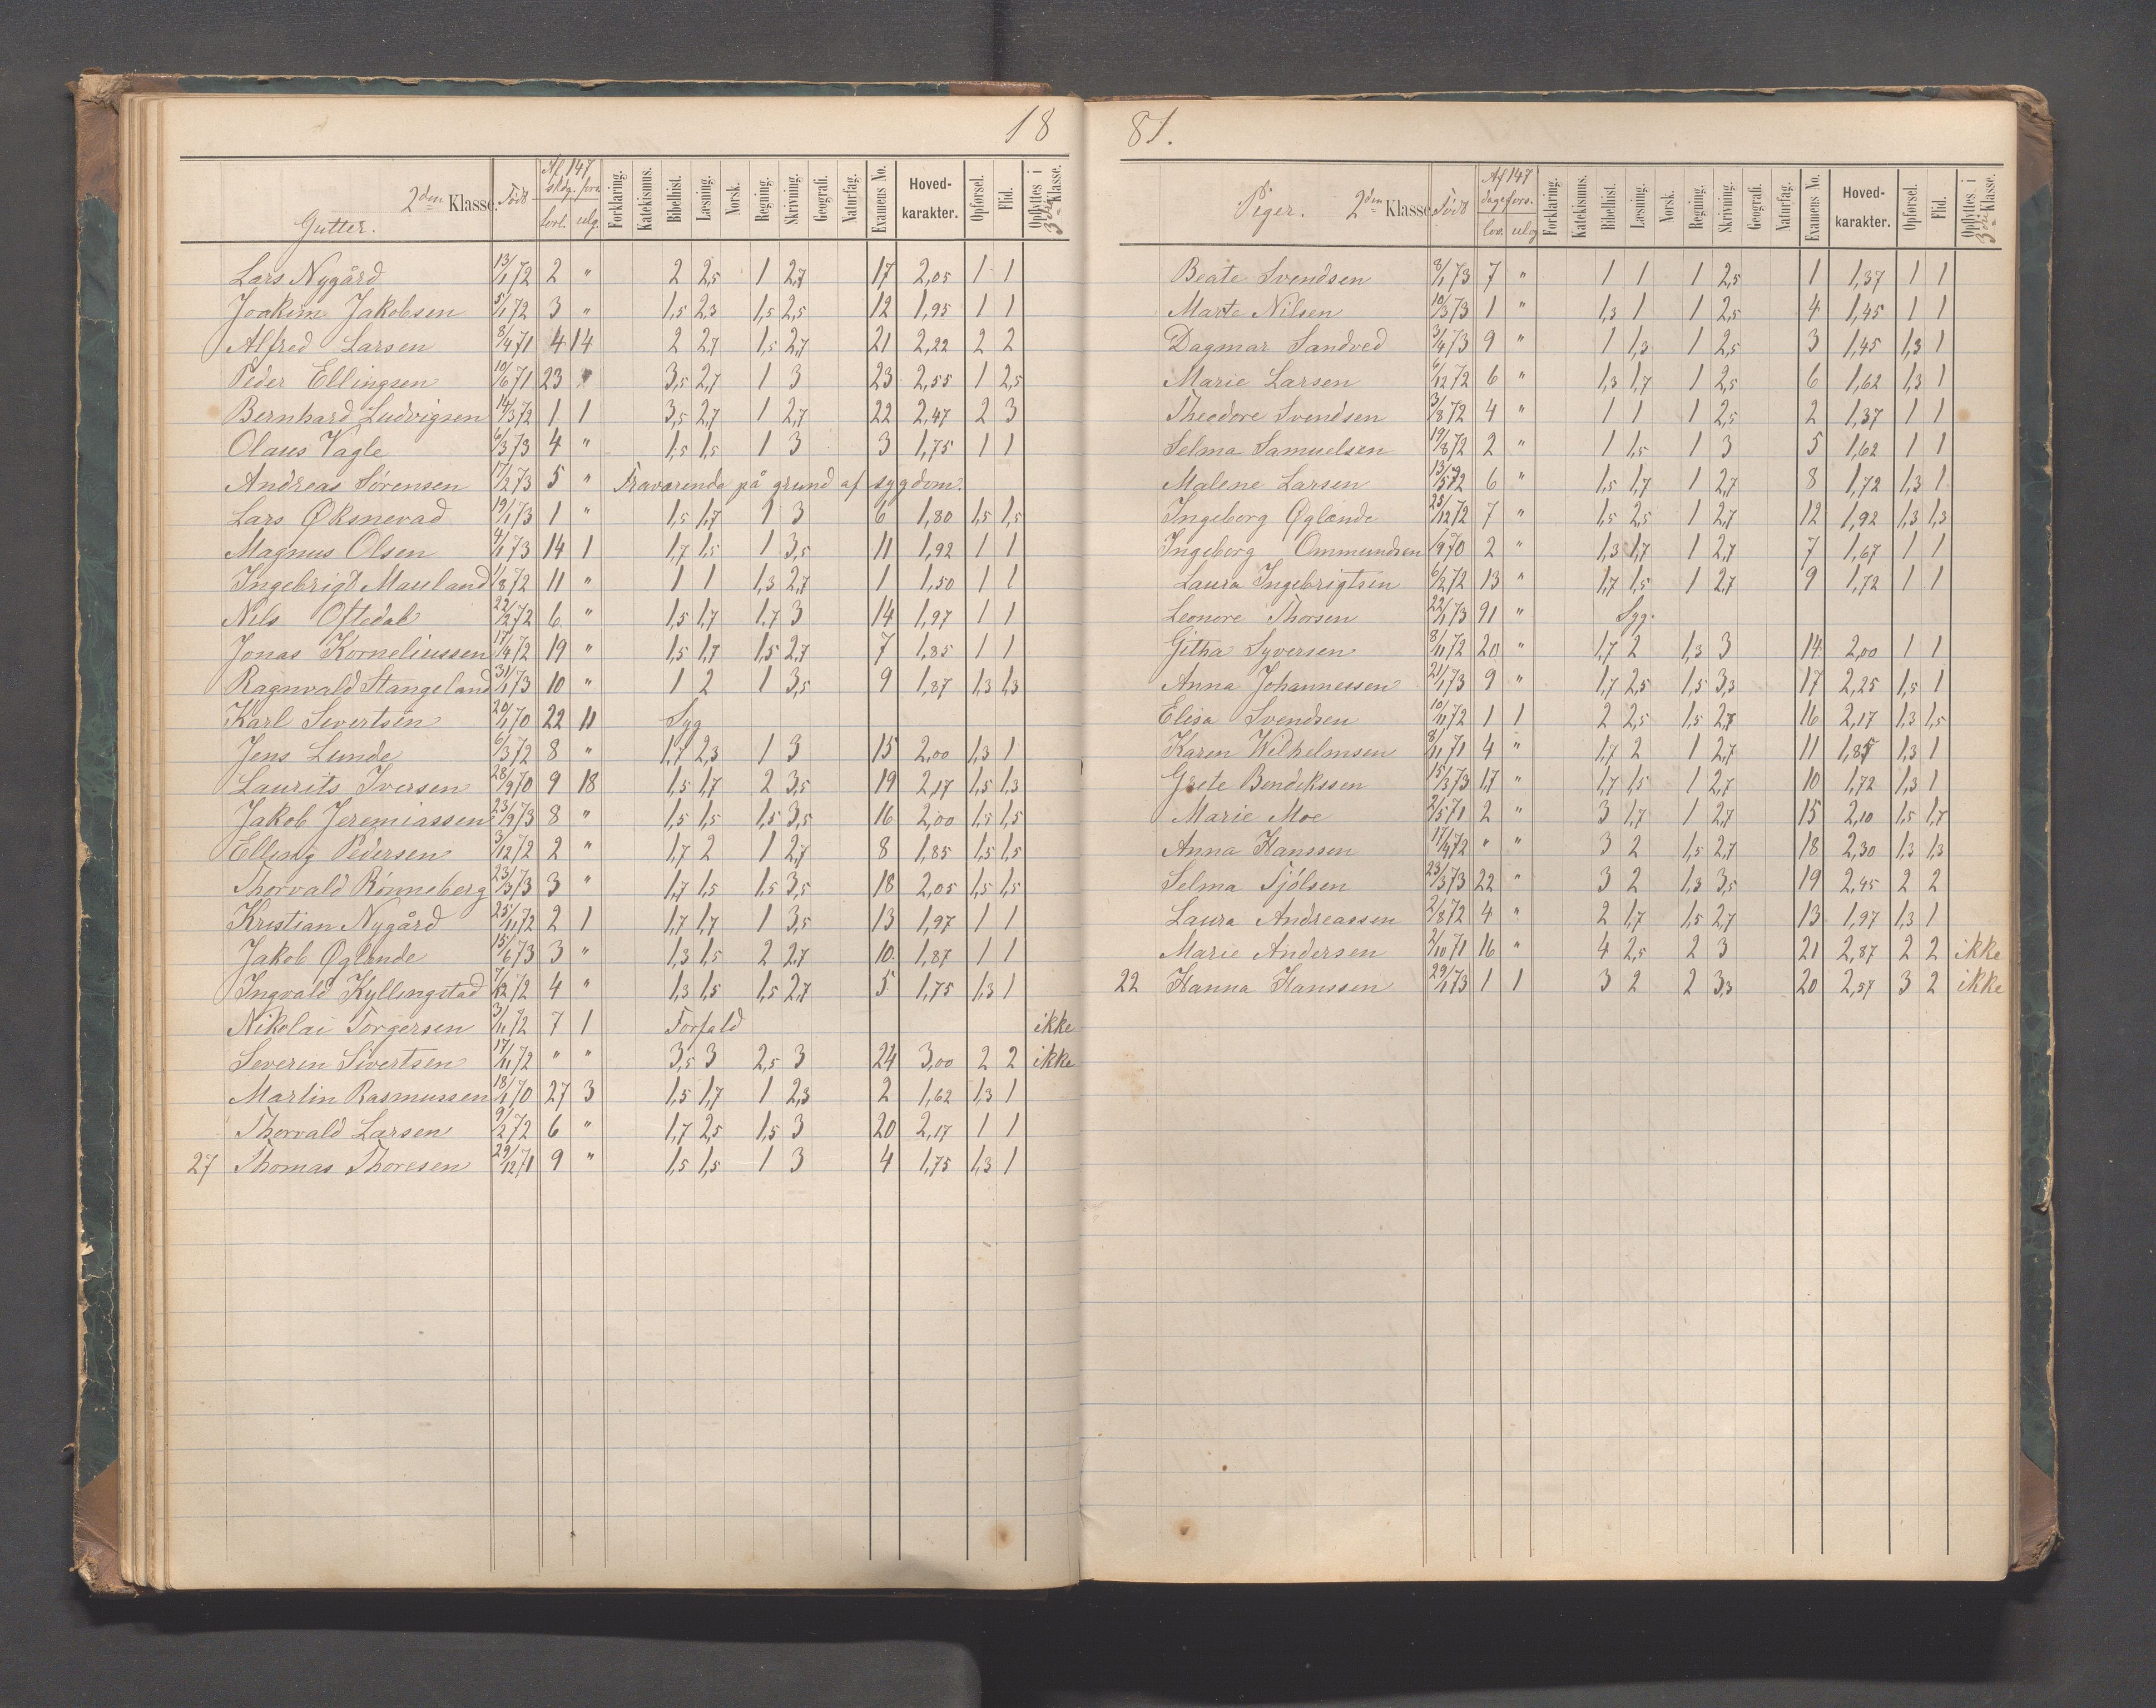 18
Gutter. 2den Klasse. Født Af 147 skdg. fors. lovl. ulg. Forklaring. Katekismus. Bibelhist. Læsning. Norsk. Regning. Skrivning. Geografi. Naturfag. Examens No. Hoved-karakter. Opførsel. Flid. Opflyttes i 3die Klasse.
Lars Nygård 13/1 72 2 " 2 2,5 1 2,7 17 2,05 1 1
Joakim Jakobsen 5/1 72 3 " 1,5 2,3 1,5 2,5 12 1,95 1 1
Alfred Larsen 8/4 71 4 14 2 2,7 1,5 2,7 21 2,22 2 2
Peder Ellingsen 10/6 71 23 " 3,5 2,7 1 3 23 2,55 1 2,5
Bernhard Ludvigsen 14/3 72 1 1 3,5 2,7 1 2,7 22 2,47 2 3
Olaus Vagle 6/3 73 4 " 1,5 1,5 1 3 3 1,75 1 1
Andreas Sørensen 17/2 73 5 " Fraværende på grund af sygdom.
Lars Øksnevad 19/1 73 1 " 1,5 1,7 1 3 6 1,80 1,5 1,5
Magnus Olsen 4/1 73 14 1 1,7 1,5 1 3,5 11 1,92 1 1
Ingebrigt Mauland 1/8 72 11 " 1 1 1,3 2,7 1 1,50 1 1
Nils Oftedal 22/2 72 6 " 1,5 1,7 1,7 3 14 1,97 1 1
Jonas Korneliussen 17/4 72 19 " 1,5 1,7 1,5 2,7 7 1,85 1 1
Ragnvald Stangeland 31/1 73 10 " 1 2 1 3,5 9 1,87 1,3 1,3
Karl Sivertsen 20/1 70 22 11 Syg
Jens Lunde 6/3 72 8 " 1,7 2,3 1 3 15 2,00 1,3 1
Laurits Iversen 28/9 70 9 18 1,5 1,7 2 3,5 19 2,17 1,5 1,3
Jakob Jeremiassen 23/9 73 8 " 1,5 1,5 1,5 3,5 16 2,00 1,5 1,5
Elling Pedersen 3/12 72 2 " 1,7 2 1 2,7 8 1,85 1,5 1,5
Thorvald Rønneberg 23/3 73 3 " 1,7 1,5 1,5 3,5 18 2,05 1,5 1,5
Kristian Nygård 25/11 72 2 1 1,7 1,7 1 3,5 13 1,97 1 1
Jakob Øglende 15/6 73 3 " 1,3 1,5 2 2,7 10 1,87 1 1
Ingvald Kyllingstad 7/12 72 4 " 1,3 1,5 1,5 2,7 5 1,75 1,3 1
Nikolai Torgersen 3/11 72 7 1 Forfald ikke
Severin Sivertsen 17/11 72 " " 3,5 3 2,5 3 24 3,00 2 2 ikke
Martin Rasmussen 18/1 70 27 3 1,5 1,7 1 2,3 2 1,62 1,3 1
Thorvald Larsen 9/2 72 6 " 1,7 2,5 1,5 3 20 2,17 1 1
27 Thomas Thoresen 29/12 71 9 " 1,5 1,5 1 3 4 1,75 1,3 1
81.
Piger. 2den Klasse Født Af 147 dage fors. lov. ulog Forklaring. Katekismus. Bibelhist. Læsning. Norsk. Regning. Skrivning. Geografi. Naturfag. Examens No. Hoved-karakter. Opførsel. Flid. Opflyttes i 3die Klasse.
Beate Svendsen 8/1 73 7 " 1 1 1 2,5 1 1,37 1 1
Marte Nilsen 10/3 73 1 " 1,3 1 1 2,5 4 1,45 1 1
Dagmar Sandved 3/4 73 9 " 1 1,3 1 2,5 3 1,45 1,3 1
Marie Larsen 6/12 72 6 " 1,3 1,7 1 2,5 6 1,62 1,3 1
Theodore Svendsen 3/8 72 4 " 1 1 1 2,5 2 1,37 1 1
Selma Samuelsen 19/8 72 2 " 1 1,5 1 3 5 1,62 1 1
Malene Larsen 13/5 72 6 " 1,5 1,7 1 2,7 8 1,72 1,3 1
Ingeborg Øglende 25/12 72 7 " 1,5 2,5 1 2,7 12 1,92 1,3 1,3
Ingeborg Ommundsen 1/9 70 2 " 1,3 1,7 1 2,7 7 1,67 1 1
Laura Ingebrigtsen 6/2 72 13 " 1,7 1,5 1 2,7 9 1,72 1 1
Leonore Thorsen 22/1 73 91 " Syg.
Githa Syversen 8/11 72 20 " 1,7 2 1,3 3 14 2,00 1 1
Anna Johannessen 21/1 73 9 " 1,7 2,5 1,5 3,3 17 2,25 1,5 1
Elisa Svendsen 10/11 72 1 1 2 2,5 1,5 2,7 16 2,17 1,3 1,5
Karen Wilhelmsen 8/11 71 4 " 1,7 2 1 2,7 11 1,85 1,3 1
Grete Bendikssen 15/3 73 17 " 1,7 1,5 1 2,7 10 1,72 1,3 1
Marie Moe 2/5 71 2 " 3 1,7 1 2,7 15 2,10 1,5 1,7
Anna Hanssen 17/4 72 " " 3 2 1,5 2,7 18 2,30 1,3 1,3
Selma Sjölsen 23/3 73 22 " 3 2 1,3 3,5 19 2,45 2 2
Laura Andreassen 2/8 72 4 " 2 1,7 1,5 2,7 13 1,97 1,3 1
Marie Andersen 2/10 71 16 " 4 2,5 2 3 21 2,87 2 2 ikke
22 Hanna Hanssen 29/1 73 1 1 3 2 2 3,3 20 2,57 3 2 ikke